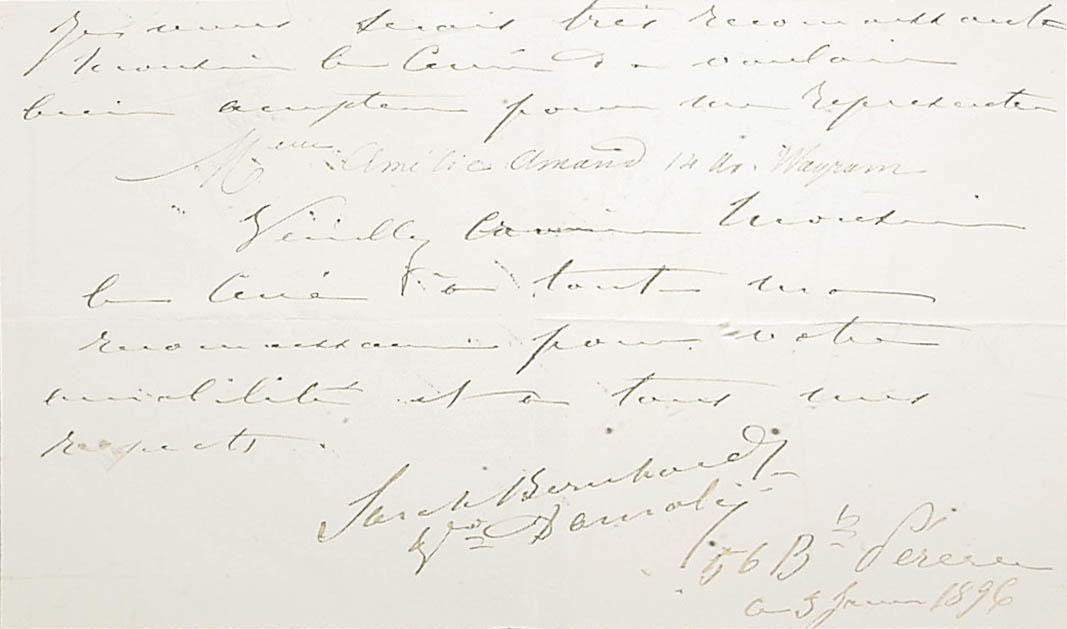 Je vous serais très reconnaissante
Monsieur le Curé de vouloir
bien accepter pour me représenter
Mme Amélie Amand 14 Av. Wagram
Veuillez croire Monsieur
le Curé à toute ma
reconnaissance pour votre
amabilité et à tous mes
respects.
Sarah Bernhardt
Vve Damala
56 Bd Pereire
ce 3 1896